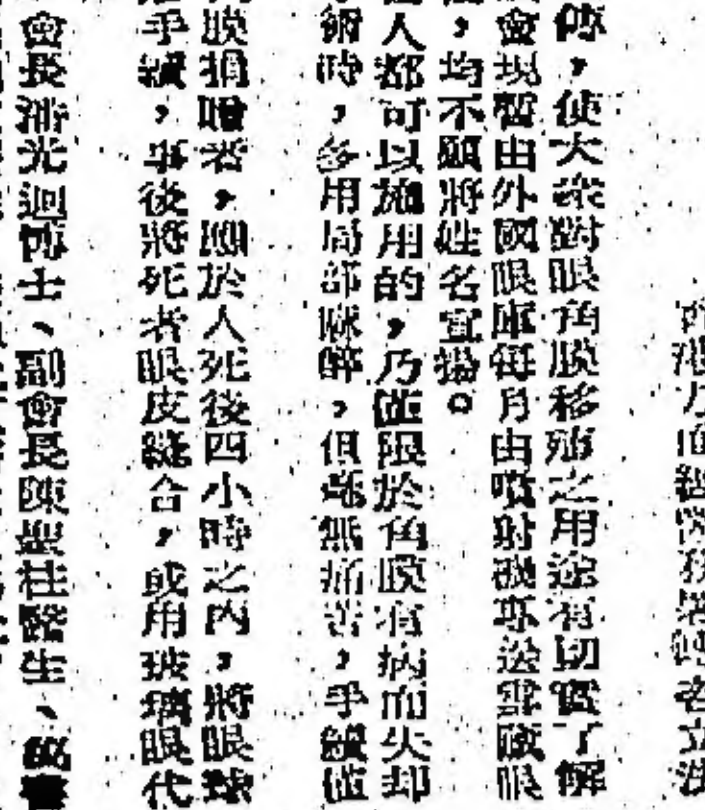 傳，使大衆對眼角膜移殖之用途有切實了解
會現暫由外國眼庫每月由噴射機專送雲眼
，均不願將姓名宣揚。
人都可以施用的，乃僅限於角膜有病而失却
術時，多用局部麻醉，但毫無痛苦，手續値
膜捐贈者，願於人死後四小時之內，將眼球
手續，事後將死者眼皮縫合，或用玻璃眼代
會長潘光迥博士、副會長陳聖柱醫生、秘書